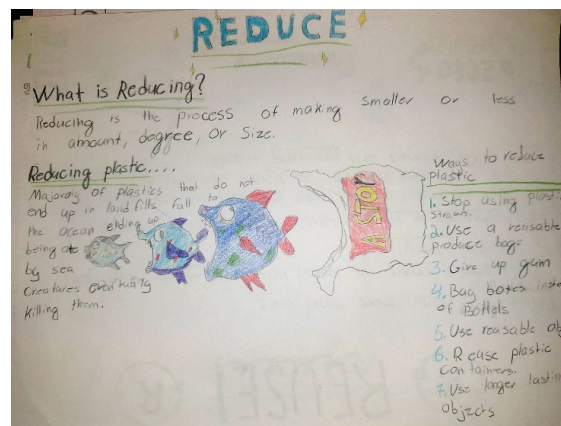 REDUCE
What is Reducing?
Reducing is the process of making smaller or less
in amount, degree, or size.
Reducing plastic....
Majoraty of plastics that do not
end up in land fills fall to
the ocean elding up
being ate
by sea
Creatures eventually
killing them.
Ways to reduce
plastic
1. Stop using plastic
straws.
2. Use a reusable
produce bags
3. Give up gum
4. Bay boxes inste
of Bottels
5. Use reasable ob
6. Reuse plastic
containers.
7. Use larger lastin
objects